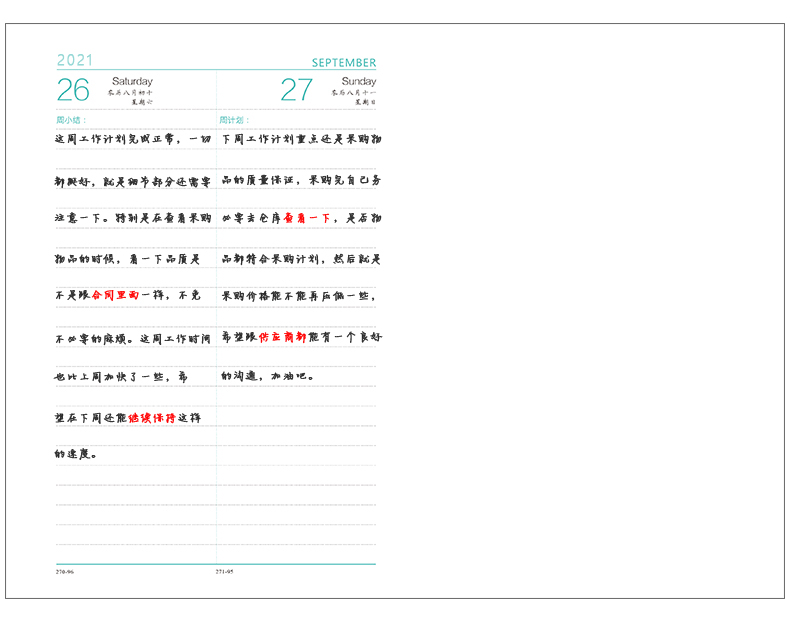 2021
SEPTEMBER
26
Saturday
农历八月初十
星期六
27
Sunday
农历八月十一
星期日
周小结：
这周工作计划完成正常，一切
都挺好，就是细节部分还需要
注意一下。特别是在查看采购
物品的时候，看一下品质是
不是跟合同里面一样，不免
不必要的麻烦。这周工作时间
也比上周加快了一些，希
望在下周还能继续保持这样
的速度。
周计划：
下周工作计划重点还是采购物
品的质量保证，采购完自己务
必要去仓库查看一下，是否物
品都符合采购计划，然后就是
采购价格能不能再压低一些，
希望跟供应商都能有一个良好
的沟通，加油吧。
270-96
271-95